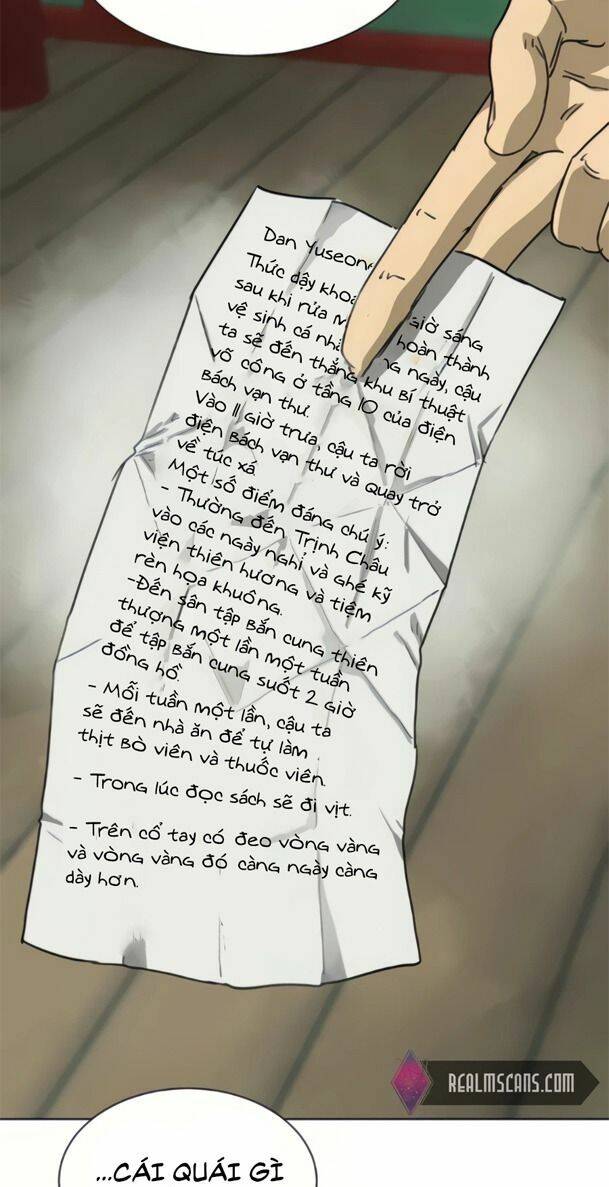 Dan Yuseong
Thức dậy kho giờ sáng
sau khi rửa m hoàn thành
vệ sinh cá nhâ ng ngày, cậu
ta sẽ đến thẳng khu bí thuật
võ công ở tầng 10 của điện
Bách vạn thư.
Vào 11 giờ trưa, cậu ta rời
điện Bách vạn thư và quay trở
về túc xá
Một số điểm đáng chú ý:
- Thường đến Trịnh Châu
vào các ngày nghỉ và ghé kỹ
viện thiên hương và tiệm
rèn họa khuông.
-Đến sân tập bắn cung thiên
thượng một lần một tuần
để tập bắn cung suốt 2 giờ
đồng hồ.
- Mỗi tuần một lần, cậu ta
sẽ đến nhà ăn để tự làm
thịt bò viên và thuốc viên.
- Trong lúc đọc sách sẽ đi vịt.
- Trên cổ tay có đeo vòng vàng
và vòng vàng đó càng ngày càng
dày hơn.
REALMSCANS.COM
...CÁI QUÁI GÌ